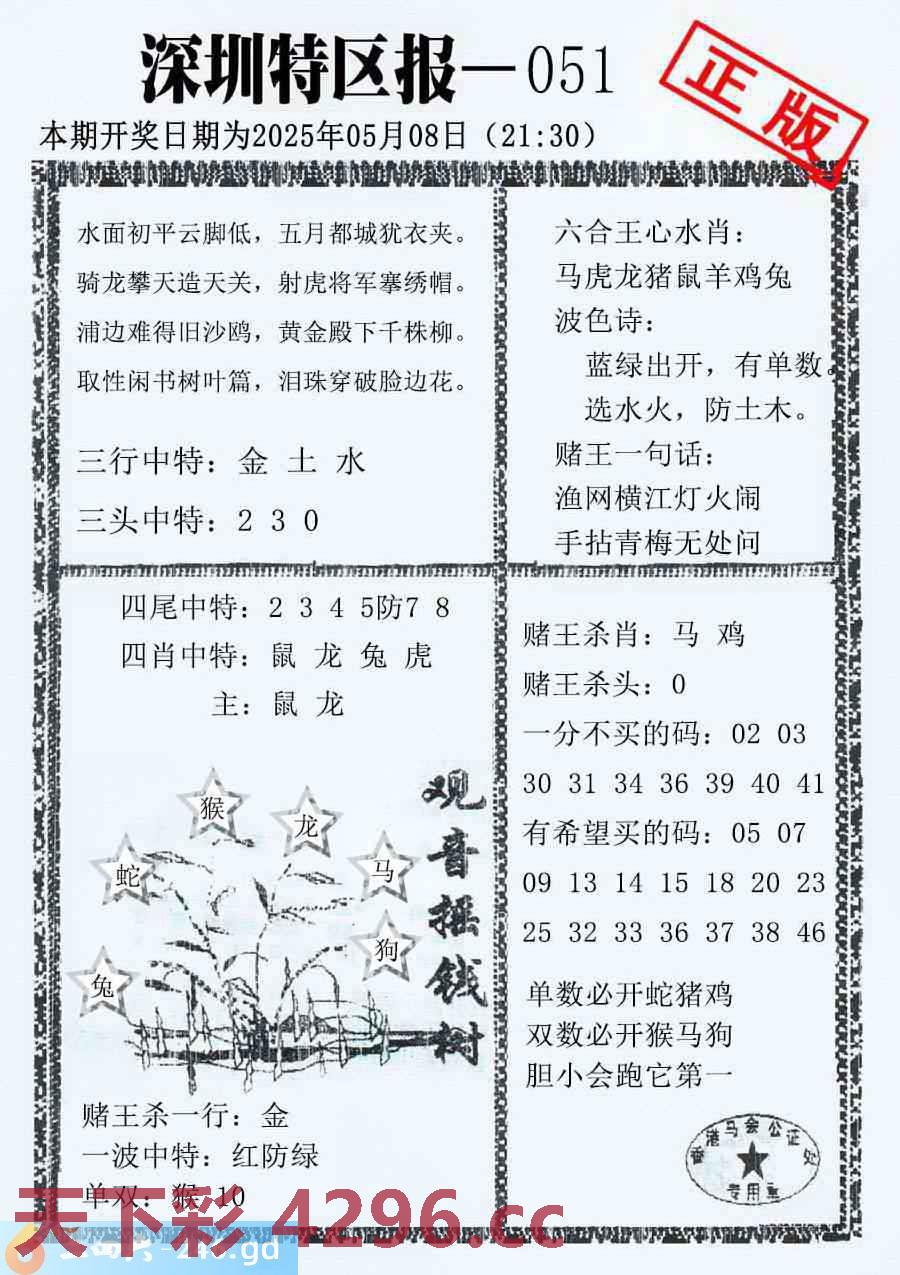 深圳特区报—051
正版
本期开奖日期为2025年05月08日（21:30）
水面初平云脚低，五月都城犹衣夹。
骑龙攀天造天关，射虎将军塞绣帽。
浦边难得旧沙鸥，黄金殿下千株柳。
取性闲书树叶篇，泪珠穿破脸边花。
三行中特：金 土 水
三头中特：2 3 0
六合王心水肖：
马虎龙猪鼠羊鸡兔
波色诗：
蓝绿出开，有单数。
选水火，防土木。
赌王一句话：
渔网横江灯火闹
手拈青梅无处问
四尾中特：2 3 4 5防7 8
四肖中特：鼠 龙 兔 虎
主：鼠 龙
猴
龙
蛇
马
狗
兔
观音摇钱树
赌王杀一行：金
一波中特：红防绿
单双：猴 10
赌王杀肖：马 鸡
赌王杀头：0
一分不买的码：02 03
30 31 34 36 39 40 41
有希望买的码：05 07
09 13 14 15 18 20 23
25 32 33 36 37 38 46
单数必开蛇猪鸡
双数必开猴马狗
胆小会跑它第一
香港马会公证处
专用章
天下彩 4296.cc